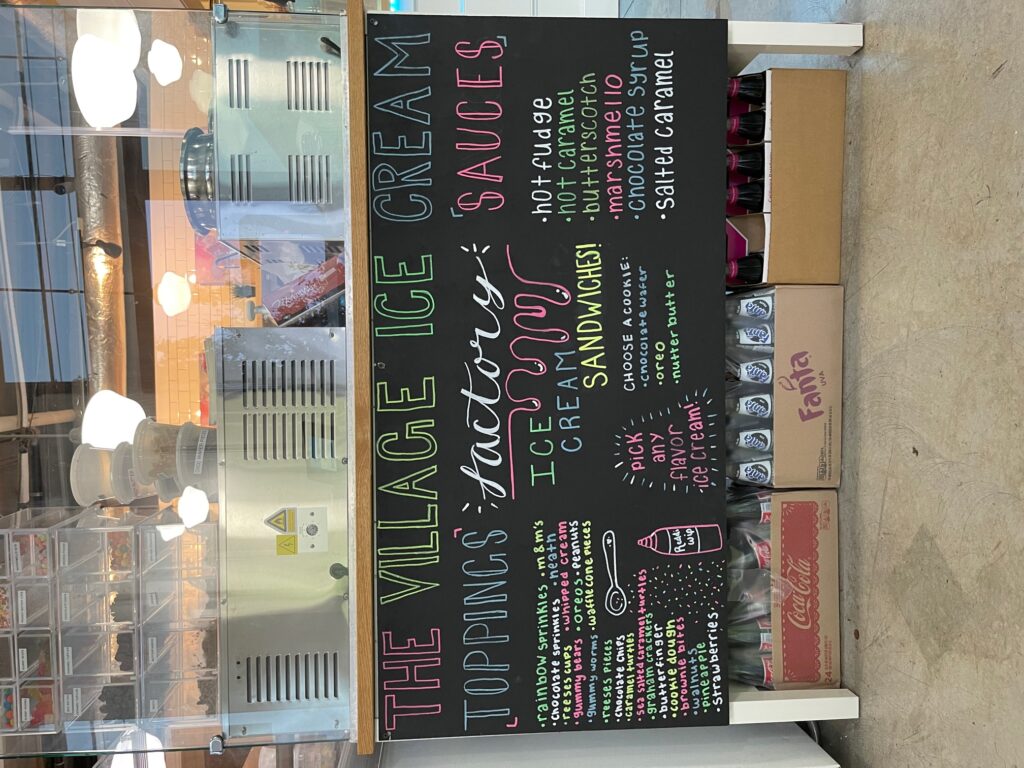 THE VILLAGE ICE CREAM
factory
TOPPINGS
• rainbow sprinkles • m & m's
• chocolate sprinkles • heath
• reeses cups • whipped cream
• gummy bears • oreos • peanuts
• gummy worms • waffle cone pieces
• reeses pieces
• chocolate chips
• caramel turtles
• sea salted caramel turtles
• graham crackers
• butterfinger
• cookie dough
• brownie bites
• walnuts
• pineapple
• strawberries
Reddi
wip
ICE
CREAM
SANDWICHES!
pick
any
flavor
ice cream!
CHOOSE A COOKIE:
• chocolate wafer
• oreo
• nutter butter
SAUCES
• hot fudge
• hot caramel
• butterscotch
• marshmello
• chocolate syrup
• salted caramel
Coca-Cola
Fanta
UVA